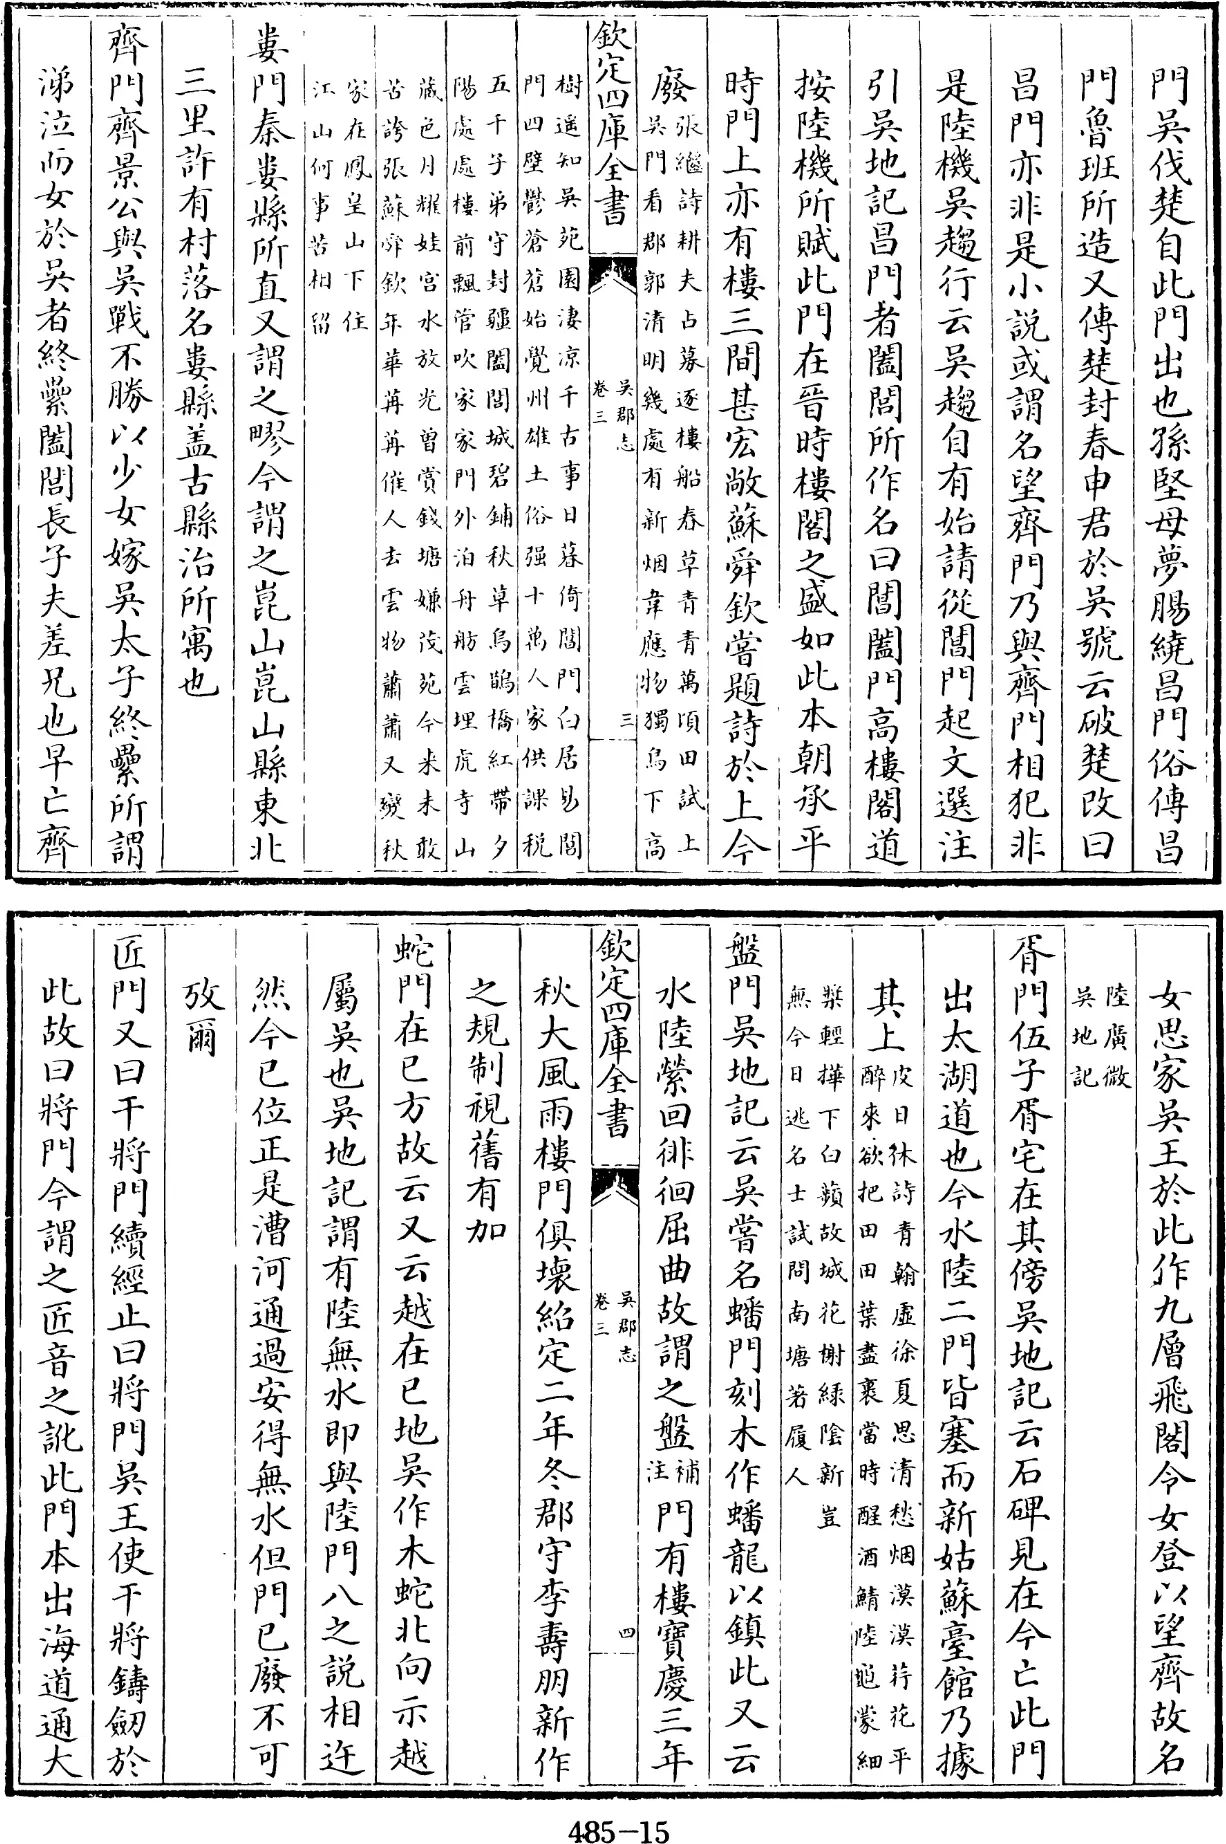 門吳伐楚自此門出也孫堅母夢腸繞昌門俗傳昌
門魯班所造又傳楚封春申君於吳號云破楚改曰
昌門亦非是小說或謂名望齊門乃與齊門相犯非
是陸機吳趨行云吳趨自有始請從閶門起文選注
引吳地記昌門者闔閭所作名曰閶闔門高樓閣道
按陸機所賦此門在晉時樓閣之盛如此本朝承平
時門上亦有樓三間甚宏敞蘇舜欽嘗題詩於上今
廢張繼詩耕夫占募逐樓船春草青青萬頃田試上
吳門看郡郭清明幾處有新烟韋應物獨鳥下高
欽定四庫全書
吳郡志
卷三
三
樹遥知吳苑園淒凉千古事日暮倚閶門白居易閶
門四壁鬱蒼蒼始覺州雄土俗强十萬人家供課税
五千子弟守封疆闔閭城碧鋪秋草烏鵲橋紅帶夕
陽處處樓前飄管吹家家門外泊舟舫雲埋虎寺山
藏色月耀娃宫水放光曾賞錢塘嫌茂苑今来未敢
苦誇張蘇舜欽年華苒苒催人去雲物蕭蕭又變秋
家在鳳皇山下住
江山何事苦相留
婁門秦婁縣所直又謂之疁今謂之崑山崑山縣東北
三里許有村落名婁縣盖古縣治所寓也
齊門齊景公與吳戰不勝以少女嫁吳太子終纍所謂
涕泣而女於吳者終纍闔閭長子夫差兄也早亡齊
女思家吳王於此作九層飛閣令女登以望齊故名
陸廣微
吳地記
胥門伍子胥宅在其傍吳地記云石碑見在今亡此門
出太湖道也今水陸二門皆塞而新姑蘇臺館乃據
其上皮日休詩青翰虛徐夏思清愁烟漠漠荇花平
醉來欲把田田葉盡裹當時醒酒鯖陸龜蒙細
槳輕撶下白蘋故城花榭緑陰新豈
無今日逃名士試問南塘著屐人
盤門吳地記云吳嘗名蟠門刻木作蟠龍以鎮此又云
水陸縈回徘徊屈曲故謂之盤補注門有樓寶慶三年
欽定四庫全書
吳郡志
卷三
四
秋大風雨樓門俱壞紹定二年冬郡守李壽朋新作
之規制視舊有加
蛇門在巳方故云又云越在巳地吳作木蛇北向示越
屬吳也吳地記謂有陸無水即與陸門八之說相迕
然今巳位正是漕河通過安得無水但門已廢不可
攷爾
匠門又曰干將門續經止曰將門吳王使干將鑄劒於
此故曰將門今謂之匠音之訛此門本出海道通大
485-15